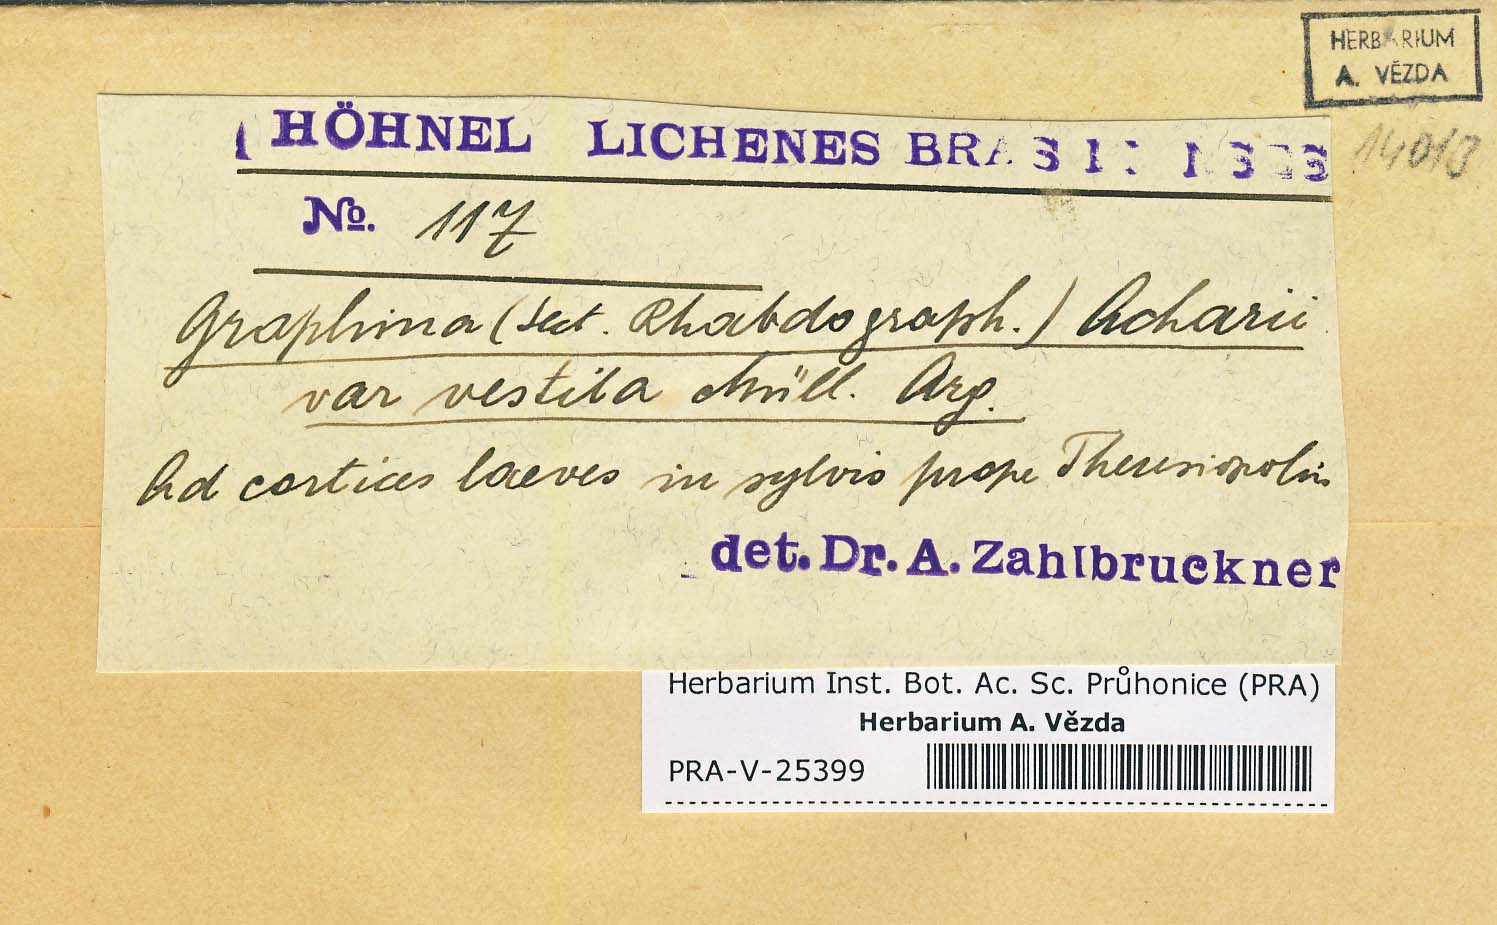 HERBARIUM
A. VĚZDA
14013
HÖHNEL LICHENES
No. 117
Graphina (Sect. Rhabdograph.) Acharii
var vestita Müll. Arg.
Ad cortices laeves in sylvis prope Theresiopolin
det. Dr. A. Zahlbruckner
Herbarium Inst. Bot. Ac. Sc. Průhonice (PRA)
Herbarium A. Vězda
PRA-V-25399